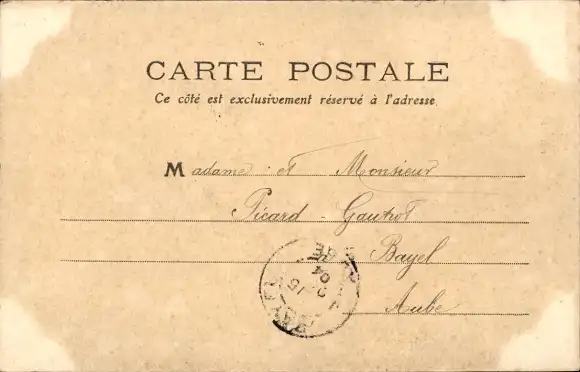 CARTE POSTALE
Ce côté est exclusivement réservé à l'adresse.
Madame et Monsieur
Picard - Gautrot
Bayel
Aube
BAYEL
15
04
AUBE